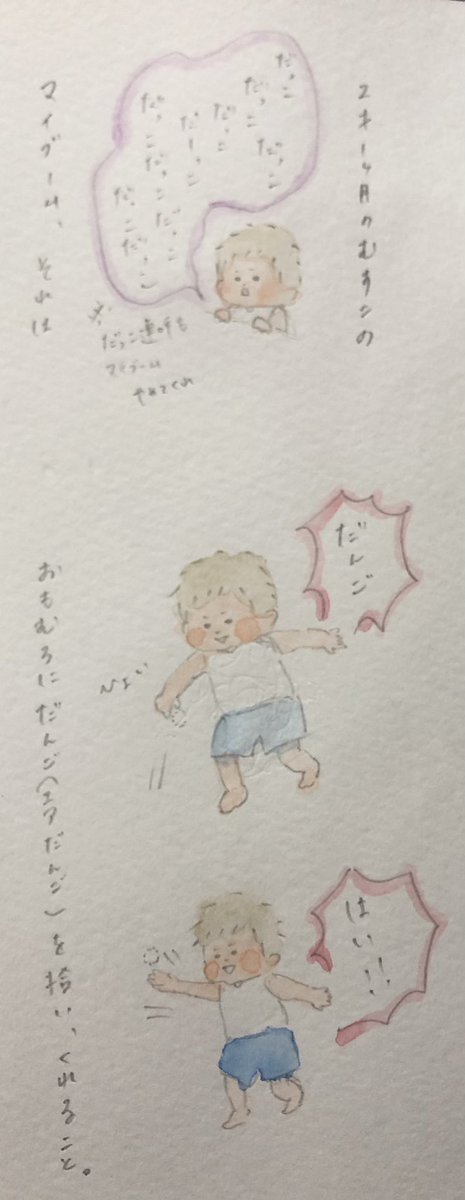 2才1ヶ月のむすこの
だっこ
だっこ
だっこ
だっこ
だーっこ
だっこ
だっこ
だっこ
だっこ
だっこ
※だっこ連呼も
マイブーム
やめてくれ
マイブーム、それは
だんご
ひょい
はい!!
おもむろにだんご(エアだんご)を拾い、くれること。